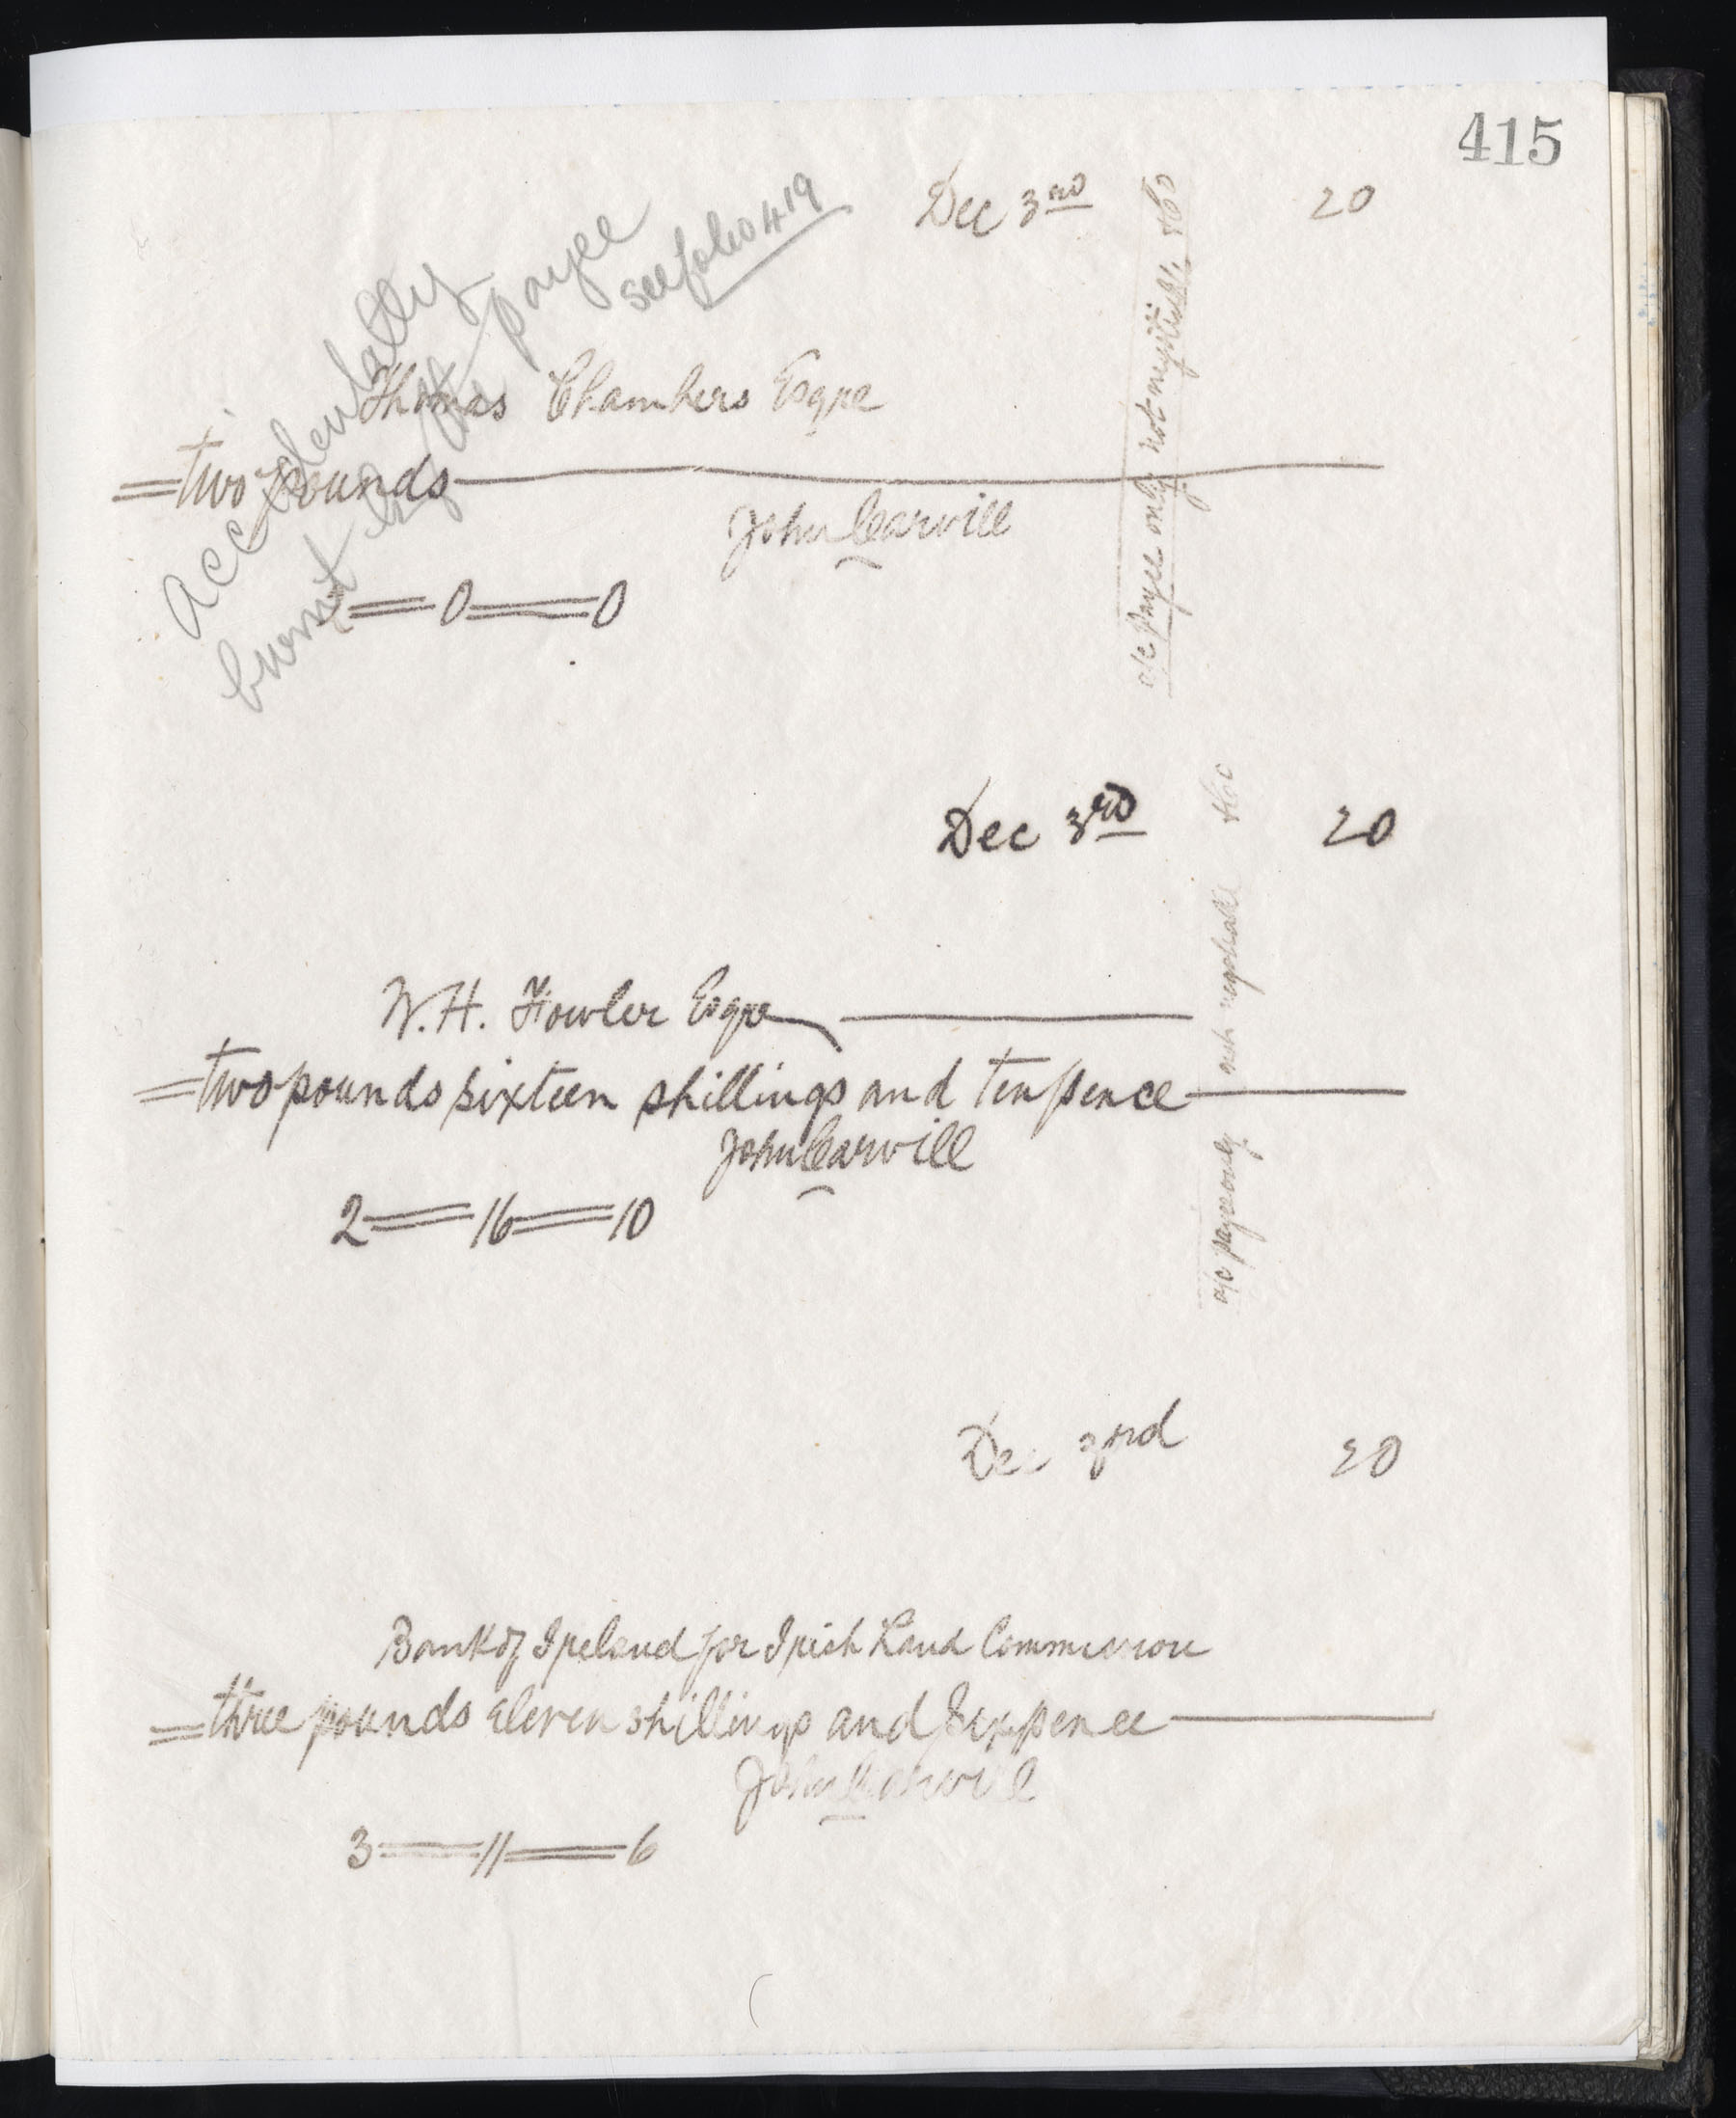 415
Dec 3rd 20
Accidentally
burnt by the payee
see folio 419
Thomas Chambers Esqre
=two pounds
John Carvill
2=0=0
a/c payee only not negotiable &Co
Dec 3rd 20
W. H. Fowler Esqre
=two pounds sixteen shillings and ten pence
John Carvill
2=16=10
a/c payee only not negotiable &Co
Dec 3rd 20
Bank of Ireland for Irish Land Commission
=three pounds eleven shillings and sixpence
John Carvill
3=11=6